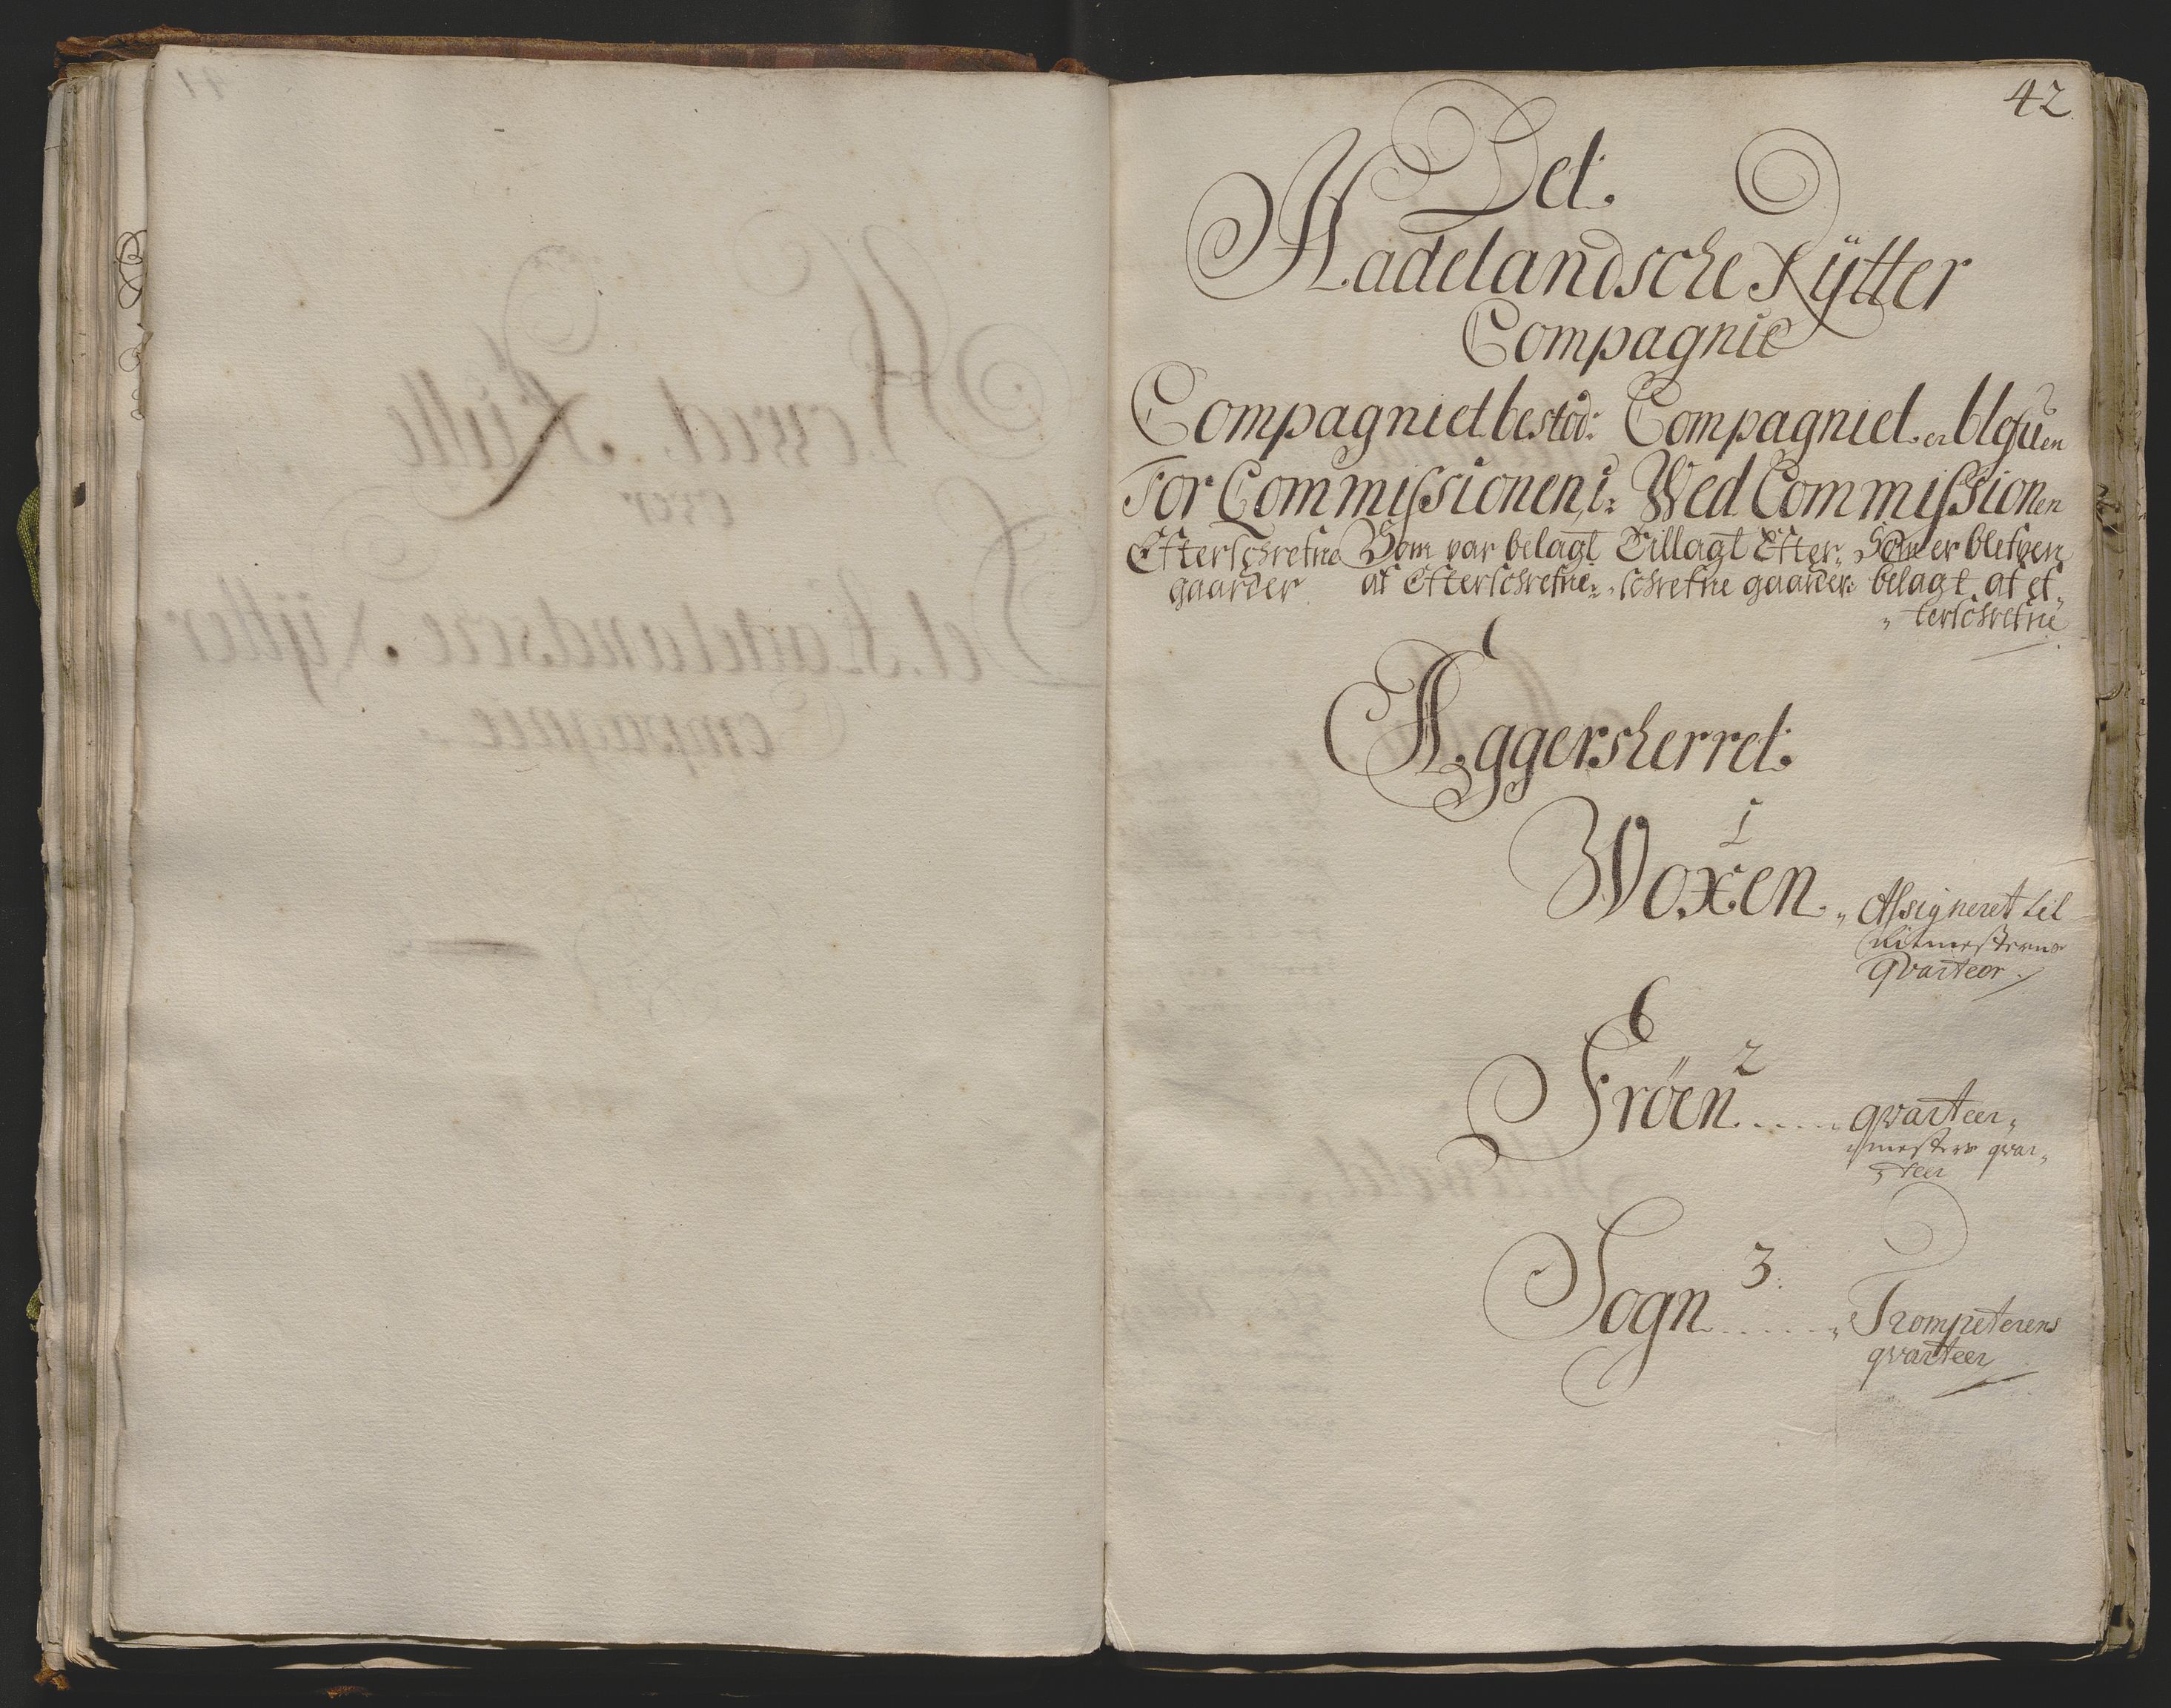 42
Det
Hadelandsche Rÿtter
Compagnie
Compagniet bestod: Compagniet er blefuen
For Commissionen, i: Wed Commissionen
Efterschrefne Som var belagt Tillagt Efter„ Som er blefven
gaarder af Efterschrefne: „schrefne gaarder: belagt af ef„
„terschrefne
Aggersherret:
1
Woxen „Assigneret til
Ritmesterens
Qvarteer
2
Fröen ..... qvarteer„
mesters qvar„
teer
3
Sogn ..... „Trompeterens
qvarteer